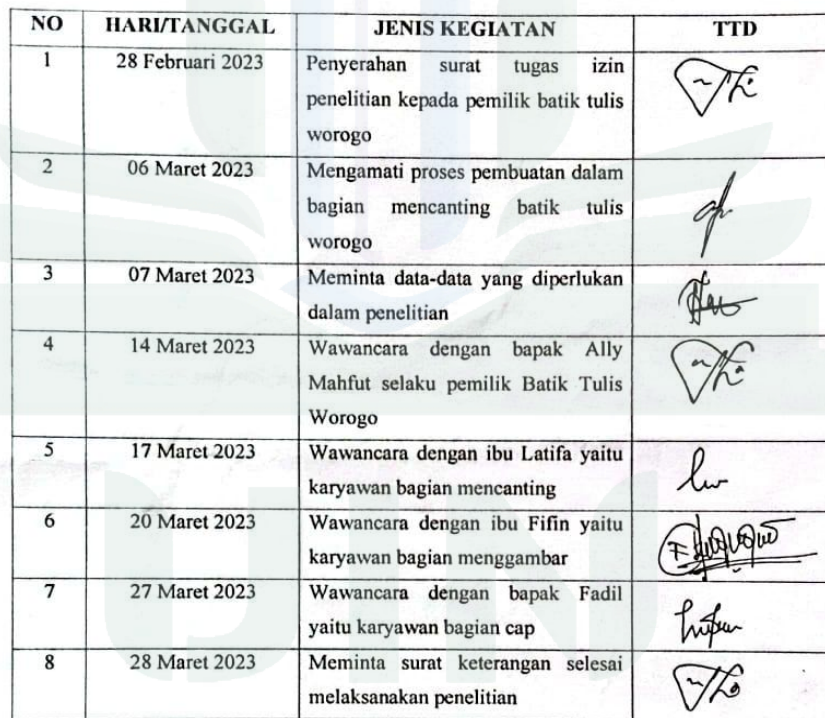 NO HARI/TANGGAL JENIS KEGIATAN TTD
1 28 Februari 2023 Penyerahan surat tugas izin
penelitian kepada pemilik batik tulis
worogo
2 06 Maret 2023 Mengamati proses pembuatan dalam
bagian mencanting batik tulis
worogo
3 07 Maret 2023 Meminta data-data yang diperlukan
dalam penelitian
4 14 Maret 2023 Wawancara dengan bapak Ally
Mahfut selaku pemilik Batik Tulis
Worogo
5 17 Maret 2023 Wawancara dengan ibu Latifa yaitu
karyawan bagian mencanting
6 20 Maret 2023 Wawancara dengan ibu Fifin yaitu
karyawan bagian menggambar
7 27 Maret 2023 Wawancara dengan bapak Fadil
yaitu karyawan bagian cap
8 28 Maret 2023 Meminta surat keterangan selesai
melaksanakan penelitian
UIN